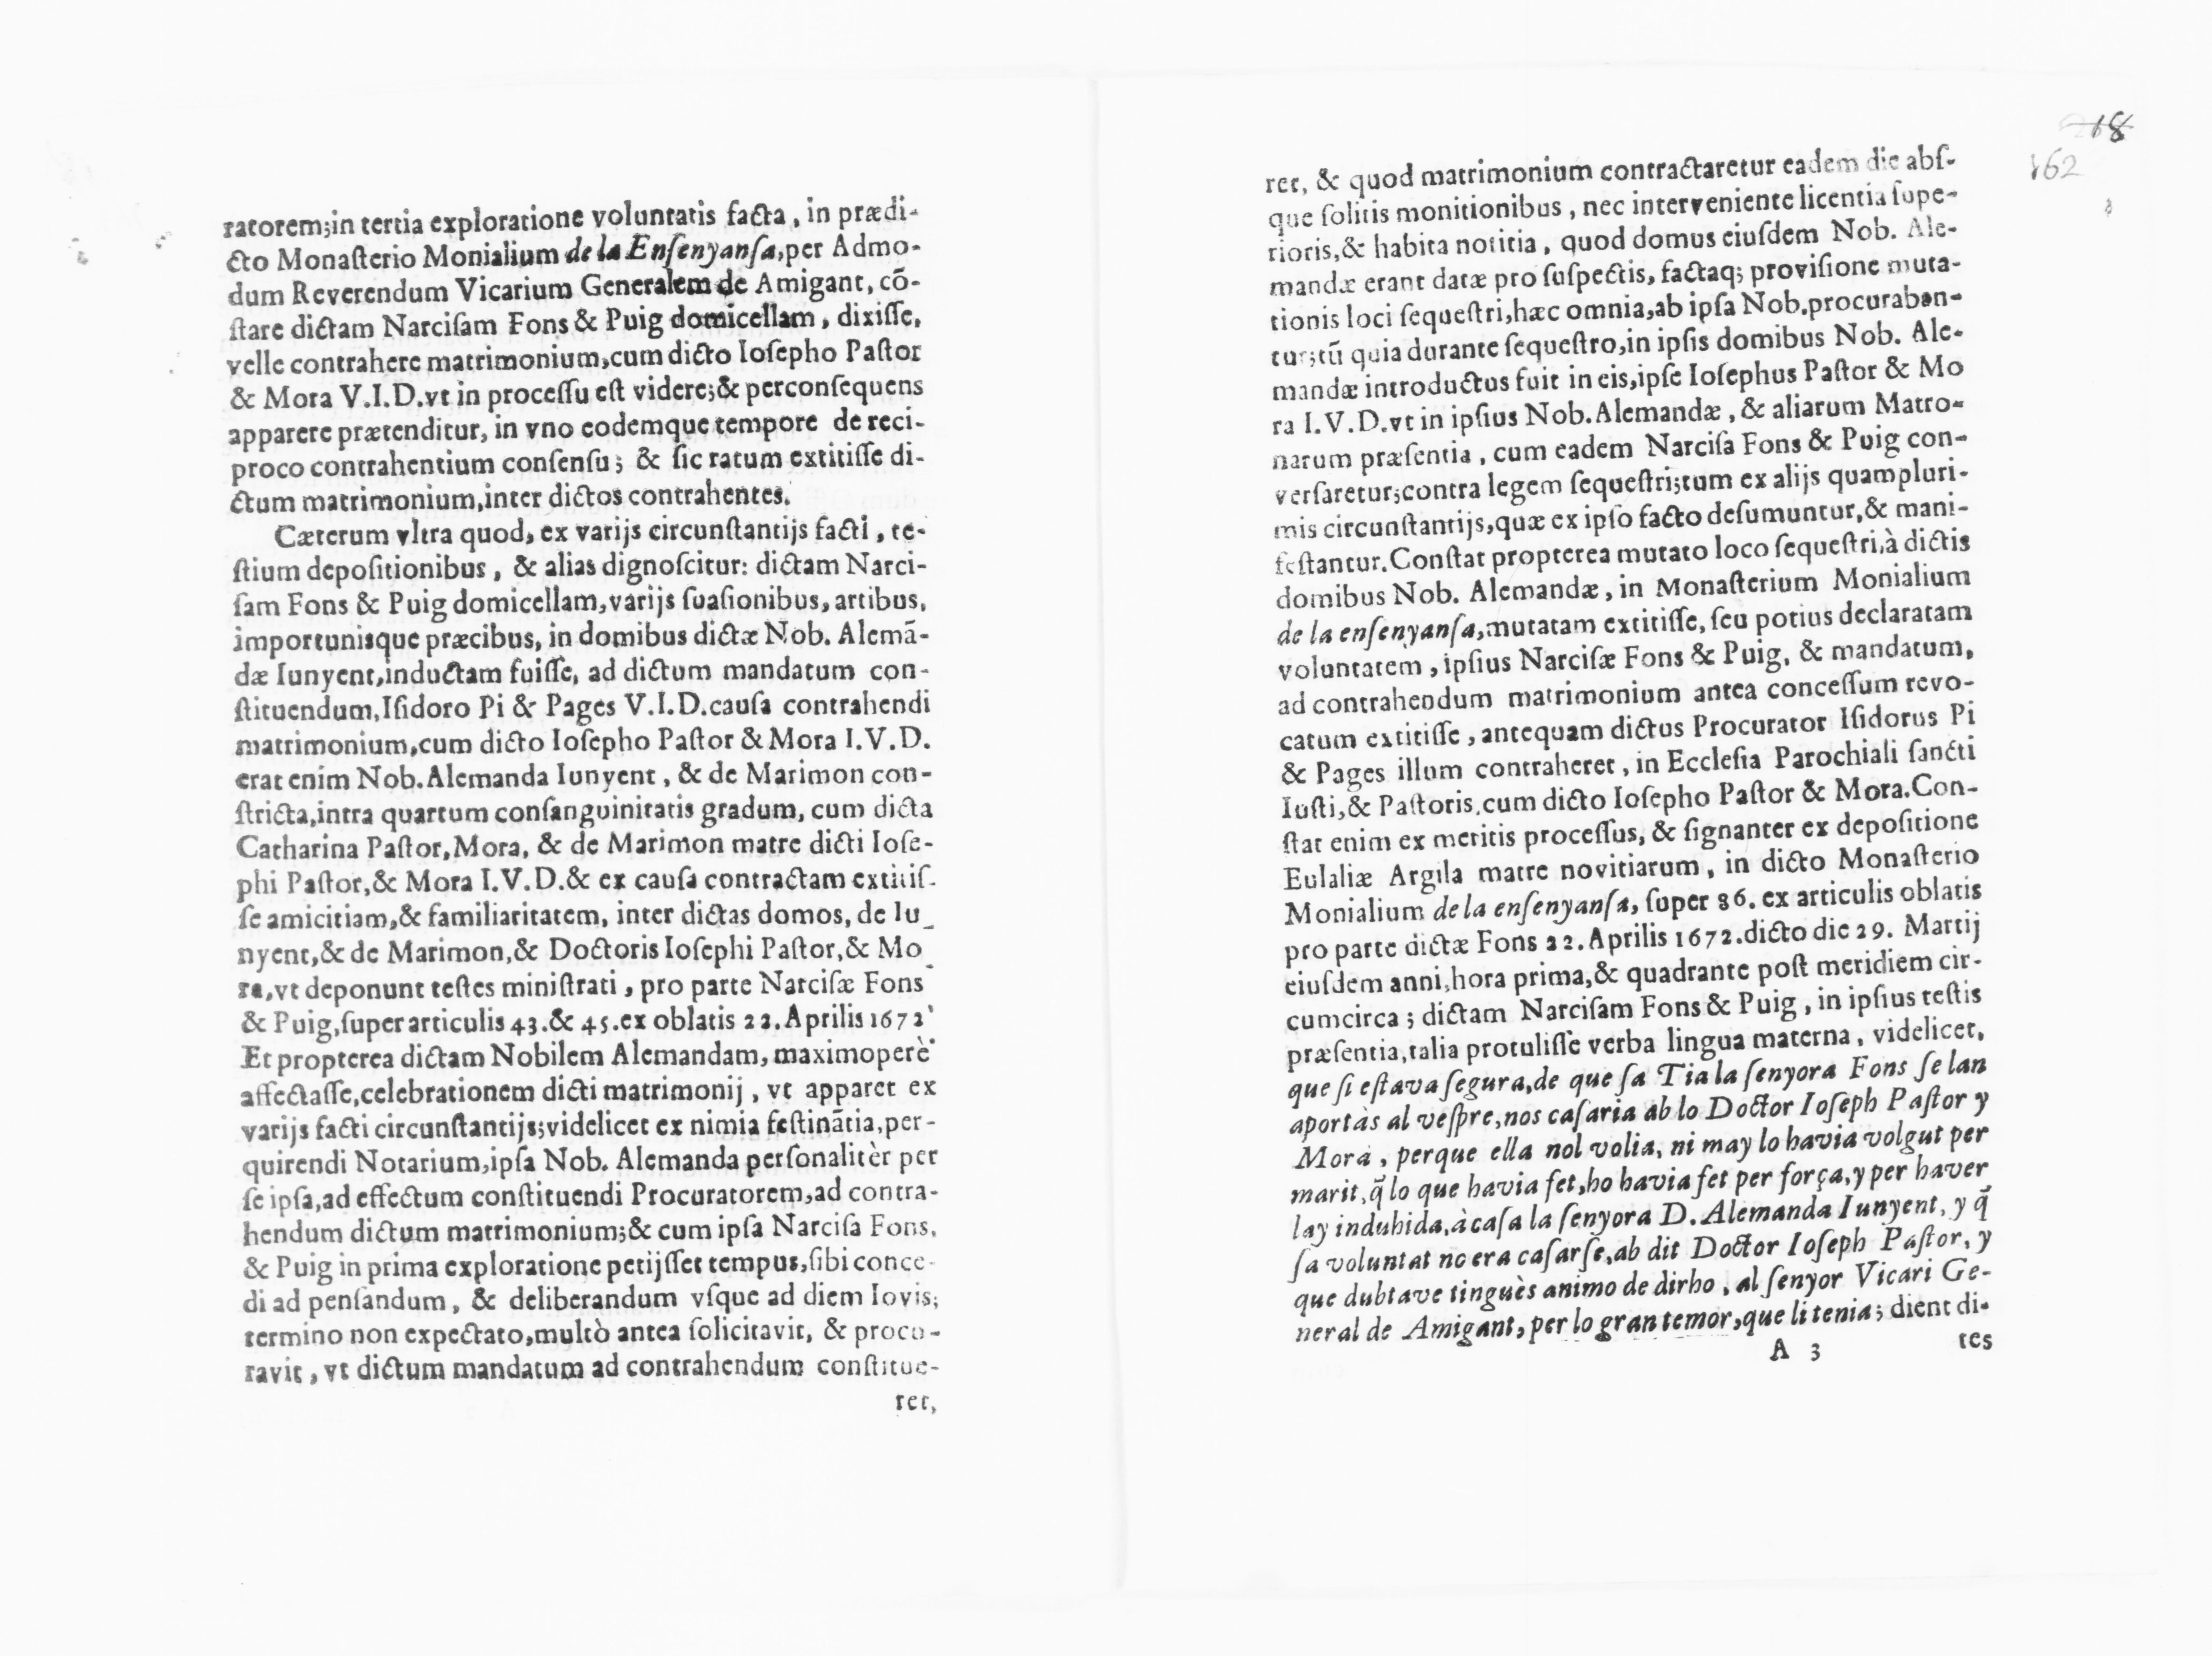 ratorem;in tertia exploratione voluntatis facta, in prædi-
cto Monaſterio Monialium de la Enſenyanſa,per Admo-
dum Reverendum Vicarium Generalem de Amigant, cõ-
ſtare dictam Narciſam Fons & Puig domicellam, dixiſſe,
velle contrahere matrimonium,cum dicto Ioſepho Paſtor
& Mora V.I.D.vt in proceſſu eſt videre;& perconſequens
apparere prætenditur, in vno eodemque tempore de reci-
proco contrahentium conſenſu; & ſic ratum extitiſſe di-
ctum matrimonium,inter dictos contrahentes.
Cæterum vltra quod, ex varijs circunſtantijs facti, te-
ſtium depoſitionibus, & alias dignoſcitur: dictam Narci-
ſam Fons & Puig domicellam,varijs ſuaſionibus, artibus,
importunisque præcibus, in domibus dictæ Nob. Alemã-
dæ Iunyent,inductam fuiſſe, ad dictum mandatum con-
ſtituendum,Iſidoro Pi & Pages V.I.D.cauſa contrahendi
matrimonium,cum dicto Ioſepho Paſtor & Mora I.V.D.
erat enim Nob.Alemanda Iunyent, & de Marimon con-
ſtricta,intra quartum conſanguinitatis gradum, cum dicta
Catharina Paſtor,Mora, & de Marimon matre dicti Ioſe-
phi Paſtor,& Mora I.V.D.& ex cauſa contractam extitiſ-
ſe amicitiam,& familiaritatem, inter dictas domos, de Iu_
nyent,& de Marimon,& Doctoris Ioſephi Paſtor,& Mo_
ra,vt deponunt teſtes miniſtrati, pro parte Narciſæ Fons
& Puig,ſuper articulis 43.& 45.ex oblatis 22.Aprilis 1672.
Et propterea dictam Nobilem Alemandam, maximoperè
affectaſſe,celebrationem dicti matrimonij, vt apparet ex
varijs facti circunſtantijs;videlicet ex nimia feſtinãtia,per-
quirendi Notarium,ipſa Nob. Alemanda perſonalitèr per
ſe ipſa,ad effectum conſtituendi Procuratorem,ad contra-
hendum dictum matrimonium;& cum ipſa Narciſa Fons,
& Puig in prima exploratione petijſſet tempus,ſibi conce-
di ad penſandum, & deliberandum vſque ad diem Iovis;
termino non expectato,multò antea ſolicitavit, & procu-
ravit, vt dictum mandatum ad contrahendum conſtitue-
ret,
218
162
ret, & quod matrimonium contractaretur eadem die abſ-
que ſolitis monitionibus, nec interveniente licentia ſupe-
rioris,& habita notitia, quod domus eiuſdem Nob. Ale-
mandæ erant datæ pro ſuſpectis, factaq; proviſione muta-
tionis loci ſequeſtri,hæc omnia,ab ipſa Nob.procuraban-
tur;tũ quia durante ſequeſtro,in ipſis domibus Nob. Ale-
mandæ introductus fuit in eis,ipſe Ioſephus Paſtor & Mo
ra I.V.D.vt in ipſius Nob.Alemandæ, & aliarum Matro-
narum præſentia, cum eadem Narciſa Fons & Puig con-
verſaretur;contra legem ſequeſtri;tum ex alijs quampluri-
mis circunſtantijs,quæ ex ipſo facto deſumuntur,& mani-
feſtantur.Conſtat propterea mutato loco ſequeſtri,à dictis
domibus Nob. Alemandæ, in Monaſterium Monialium
de la enſenyanſa,mutatam extitiſſe, ſeu potius declaratam
voluntatem, ipſius Narciſæ Fons & Puig, & mandatum,
ad contrahendum matrimonium antea conceſſum revo-
catum extitiſſe, antequam dictus Procurator Iſidorus Pi
& Pages illum contraheret, in Eccleſia Parochiali ſancti
Iuſti,& Paſtoris,cum dicto Ioſepho Paſtor & Mora.Con-
ſtat enim ex meritis proceſſus, & ſignanter ex depoſitione
Eulaliæ Argila matre novitiarum, in dicto Monaſterio
Monialium de la enſenyanſa, ſuper 86. ex articulis oblatis
pro parte dictæ Fons 22.Aprilis 1672.dicto die 29. Martij
eiuſdem anni,hora prima,& quadrante poſt meridiem cir-
cumcirca; dictam Narciſam Fons & Puig, in ipſius teſtis
præſentia,talia protuliſſe verba lingua materna, videlicet,
que ſi eſtava ſegura,de que ſa Tia la ſenyora Fons ſe lan
aportàs al veſpre,nos caſaria ab lo Doctor Ioſeph Paſtor y
Mora, perque ella nol volia, ni may lo havia volgut per
marit,q̃ lo que havia fet,ho havia fet per força,y per haver
lay induhida,à caſa la ſenyora D. Alemanda Iunyent, y q̃
ſa voluntat no era caſarſe,ab dit Doctor Ioſeph Paſtor, y
que dubtave tinguès animo de dirho, al ſenyor Vicari Ge-
neral de Amigant, per lo gran temor,que li tenia; dient di-
A 3
tes